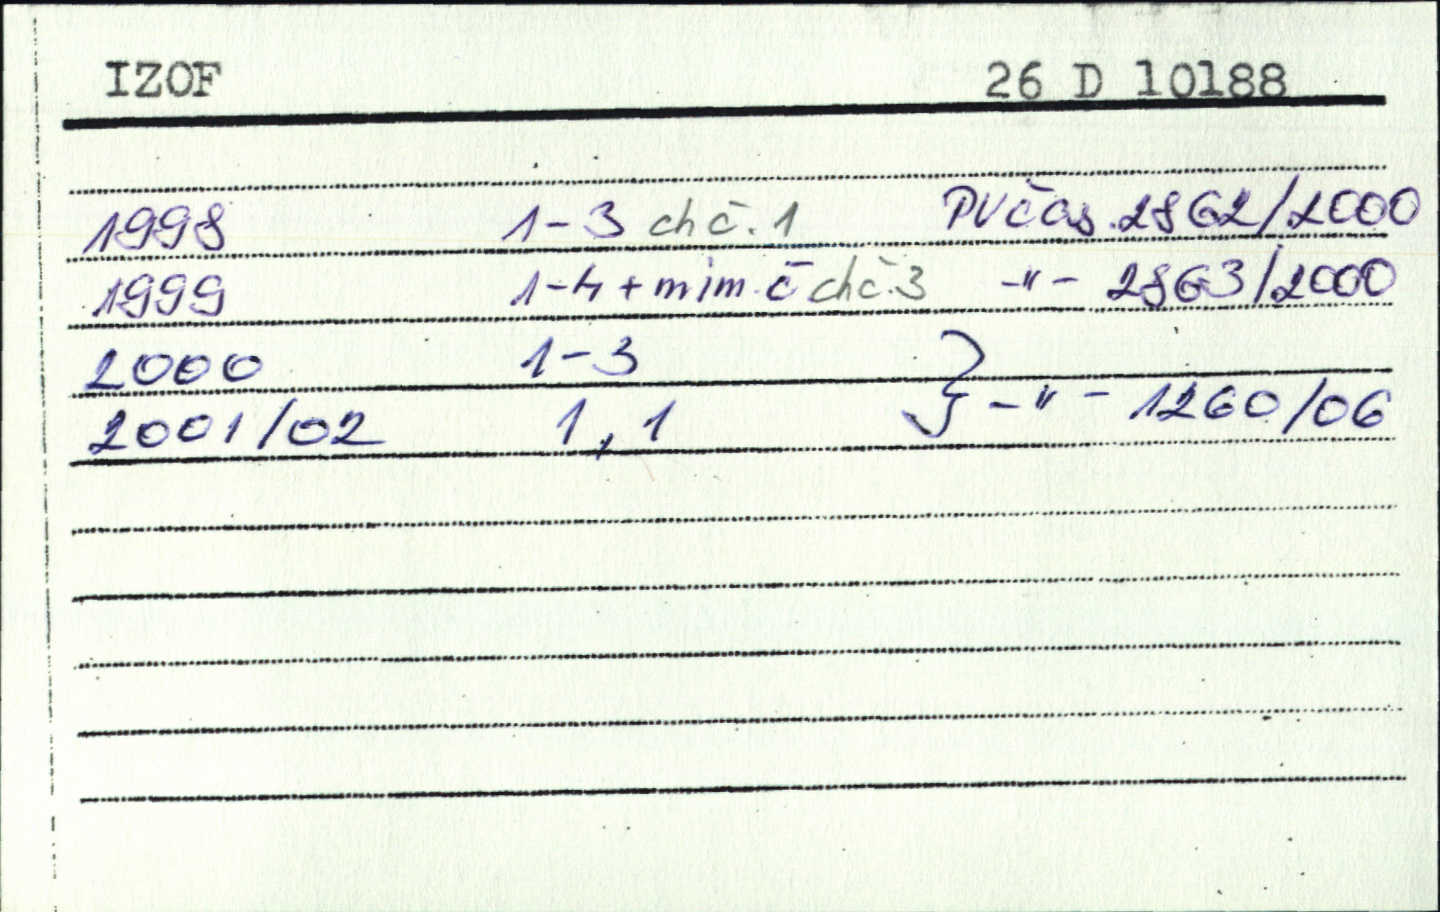 IZOF 26 D 10188
1998 1-3 chč.1 PVčas.2862/2000
1999 1-4+mim.č chč.3 -"- 2863/2000
2000 1-3
2001/02 1,1 } -"- 1260/06